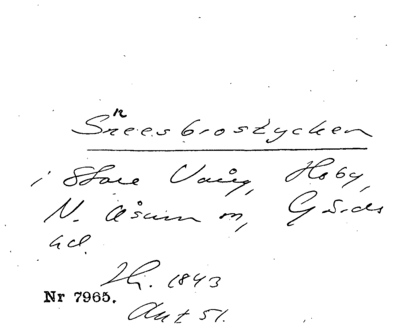 Snees brostycken
i Stora Vång, Hoby,
N. Åsum m, Gärds
hd.
Hi. 1843
Nr 7965.
Ant 51.